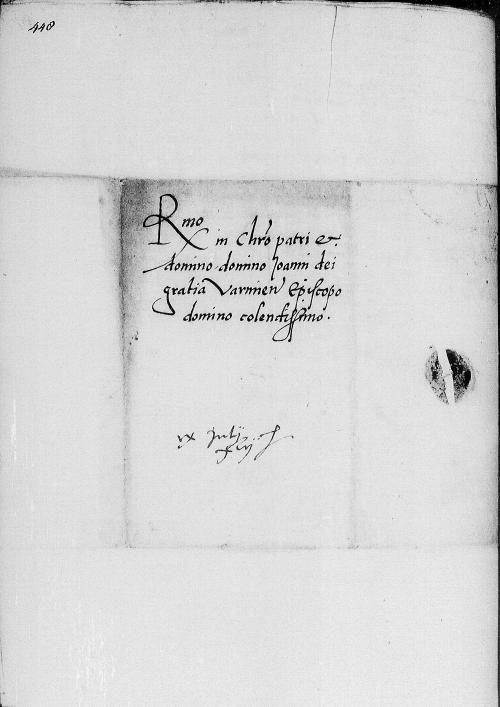 448
Rmo
in Chro patri et
domino domino Joanni dei
gratia Varmien Episcopo
domino colendissimo.
ix Julij